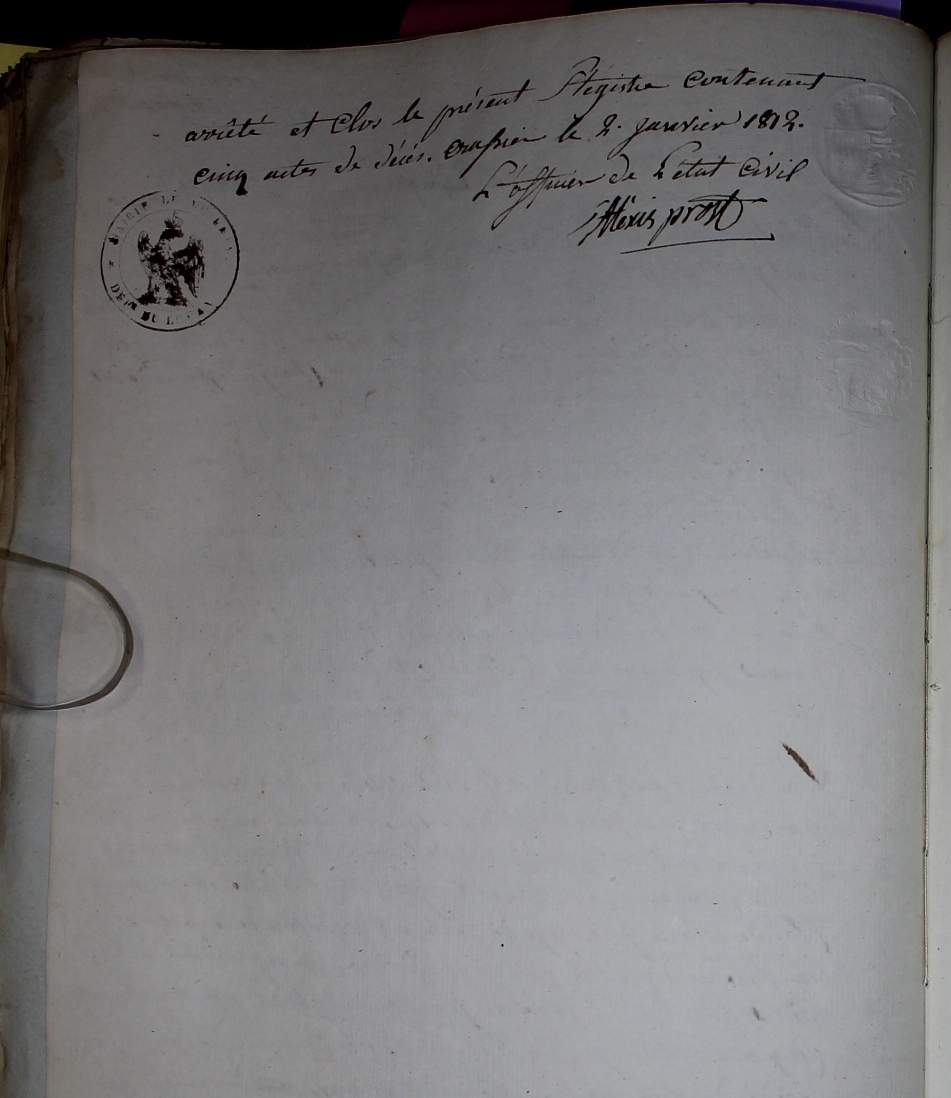 arrêté et Clos le présent Régistre Contenant
cinq actes de décés. Crassier le 2. janvier 1812.
L'officier de L'état Civil
Alexis prost
MAIRIE DE
DEPT DU LEMAN